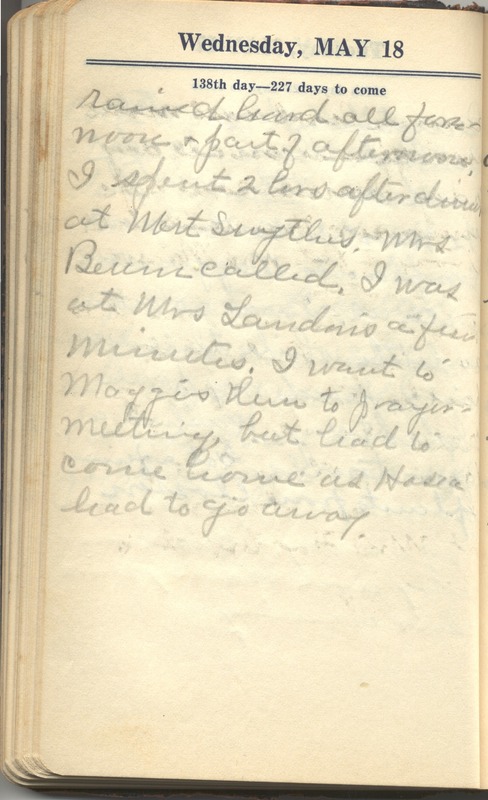 Wednesday, MAY 18
138th day—227 days to come
rained hard all fore-
noon & part of afternoon,
I spent 2 hrs after
at Mert Smythes. Mrs
called. I was
at Mrs Landon's a few
minutes. I want to
Maggis then to prayer-
meeting, but had to
come home as
had to go away